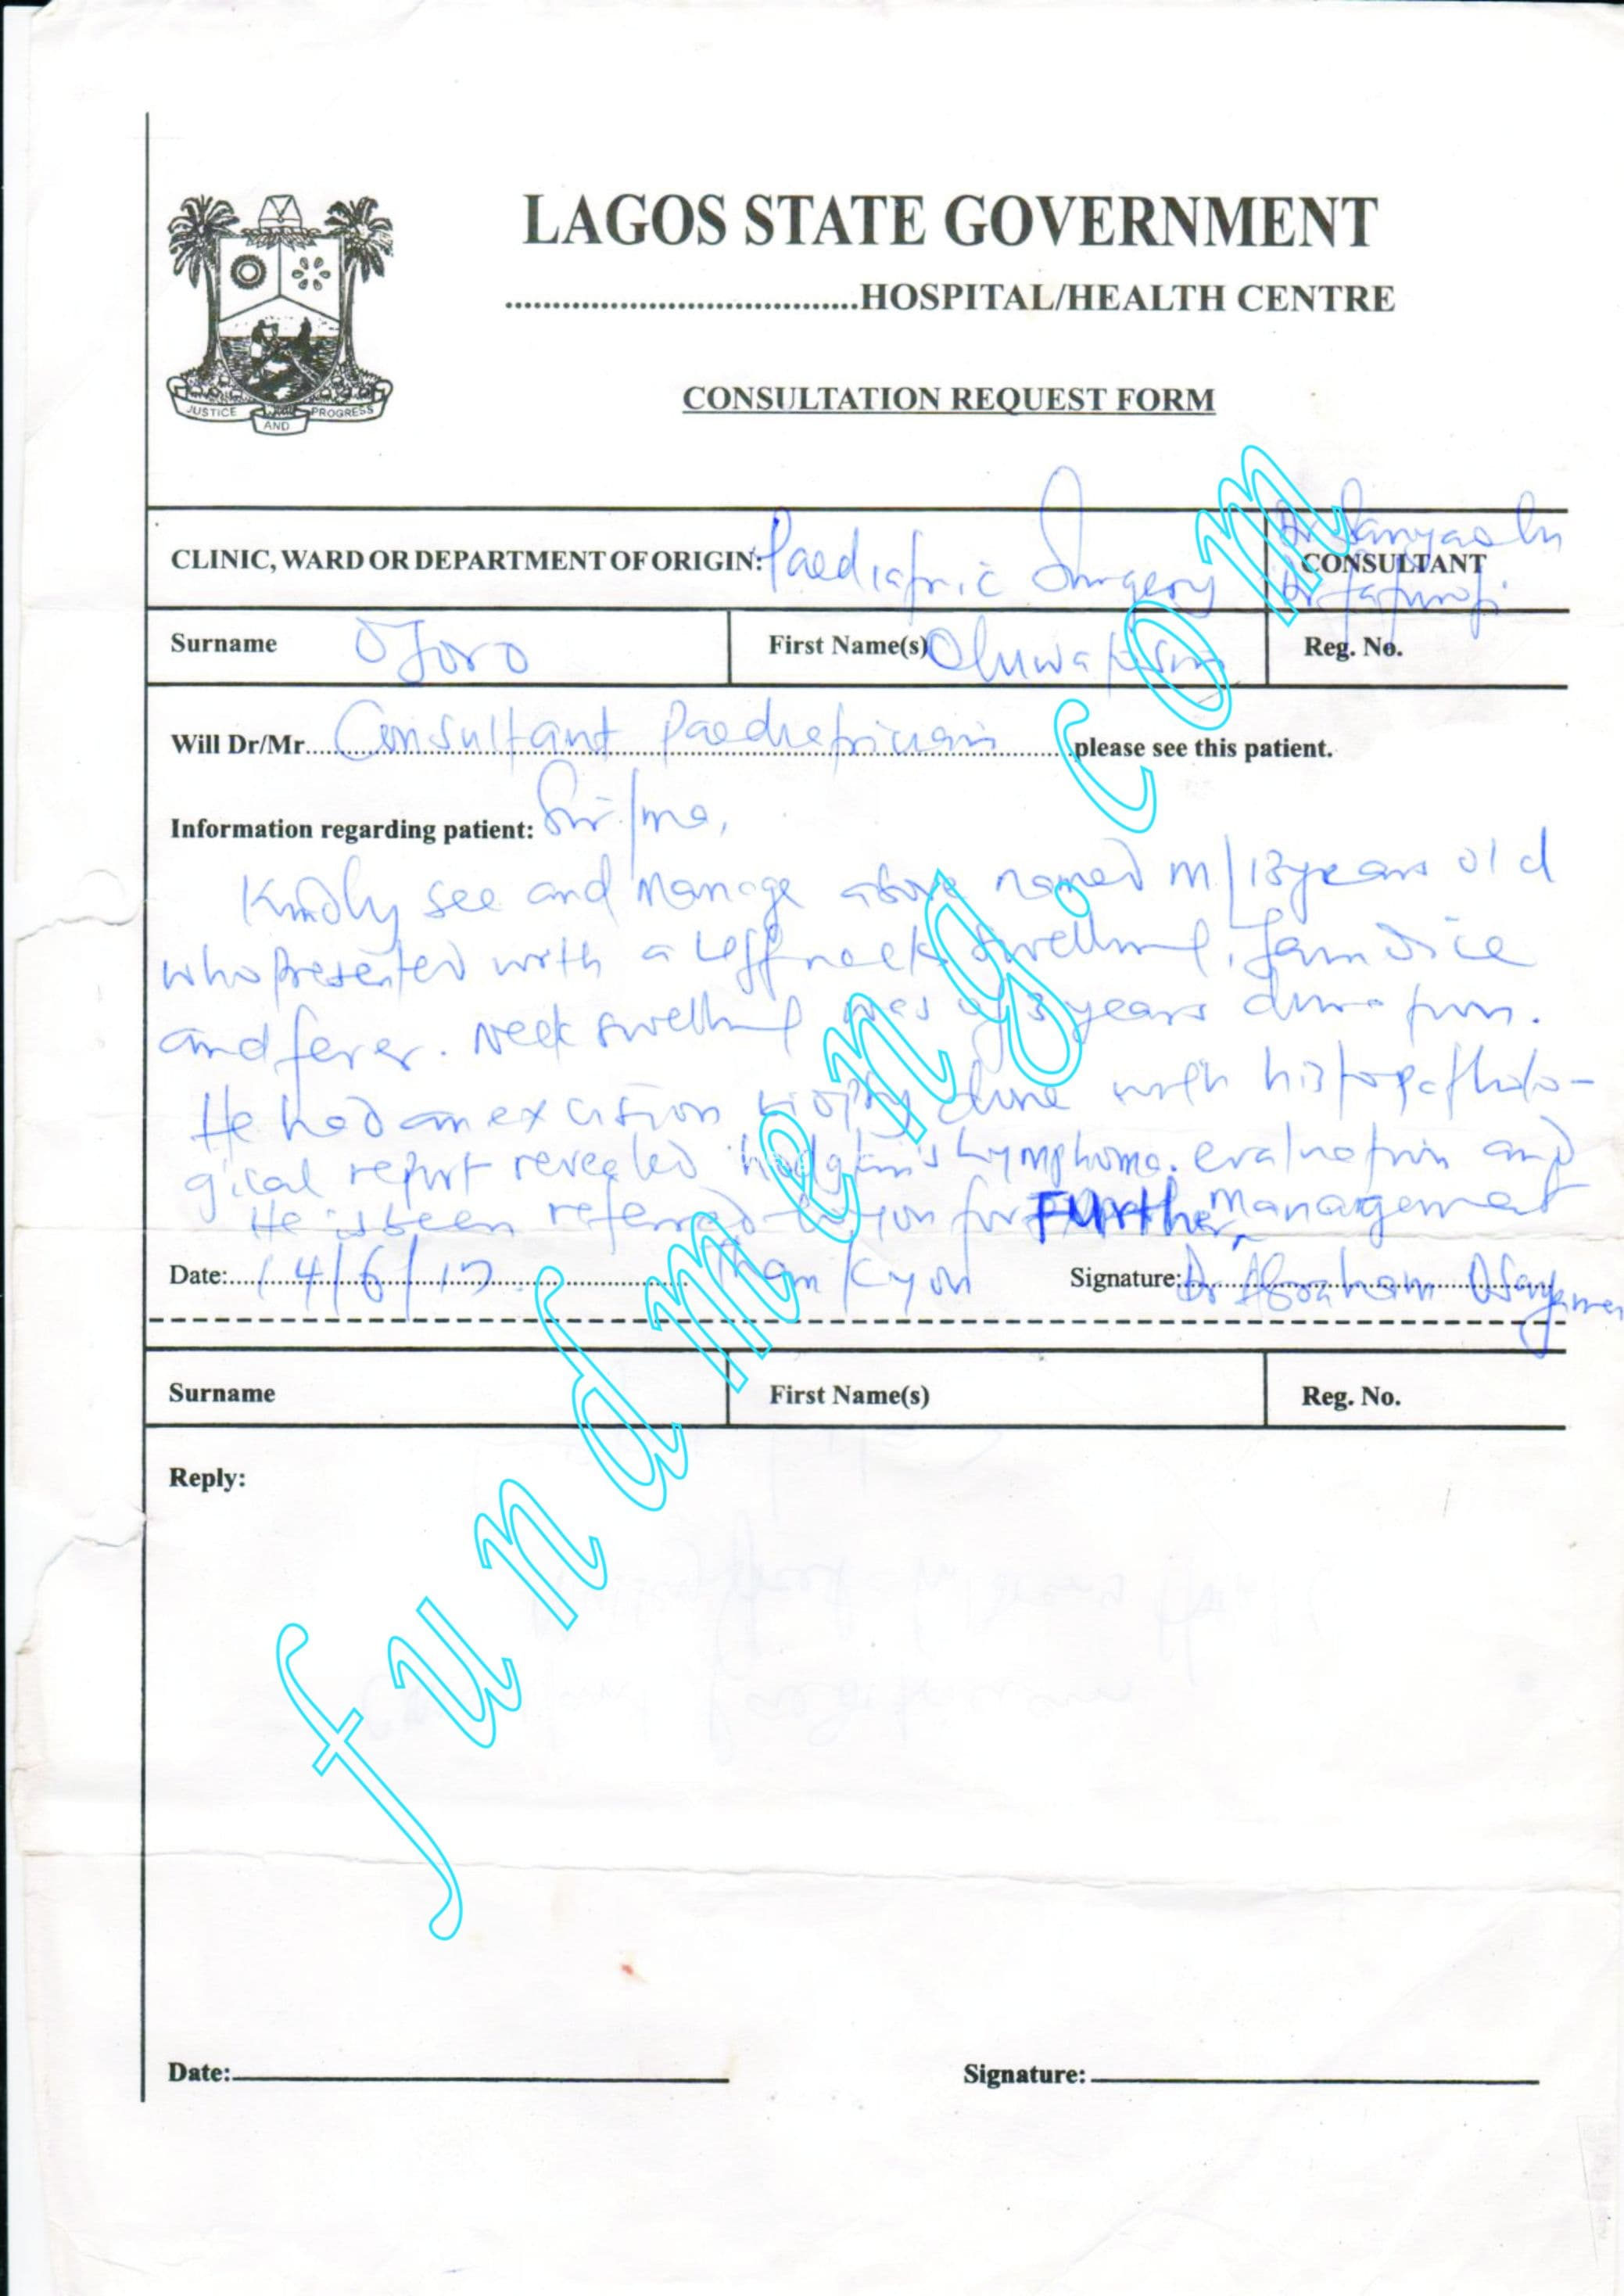 LAGOS STATE GOVERNMENT
....................................HOSPITAL/HEALTH CENTRE
JUSTICE AND PROGRESS
CONSULTATION REQUEST FORM
CLINIC, WARD OR DEPARTMENT OF ORIGIN: Paediatric Surgery CONSULTANT
Surname OJoro First Name(s) Reg. No.
Will Dr/Mr. Consultant Paediatrician please see this patient.
Information regarding patient: Sir/ma,
Kindly see and manage above named m/13years old
who presented with a left neck swelling, Jaundice
and fever. Neck swelling was of 3 years duration.
He had an excision biopsy done with histopatholo-
gical report revealed hodgkin's Lymphoma. evaluation and
He is been referred to you for FUrther management
Date: 14/6/17 Thank you Signature: Dr Abraham
Surname First Name(s) Reg. No.
Reply:
Date: Signature:
fundmeng.com